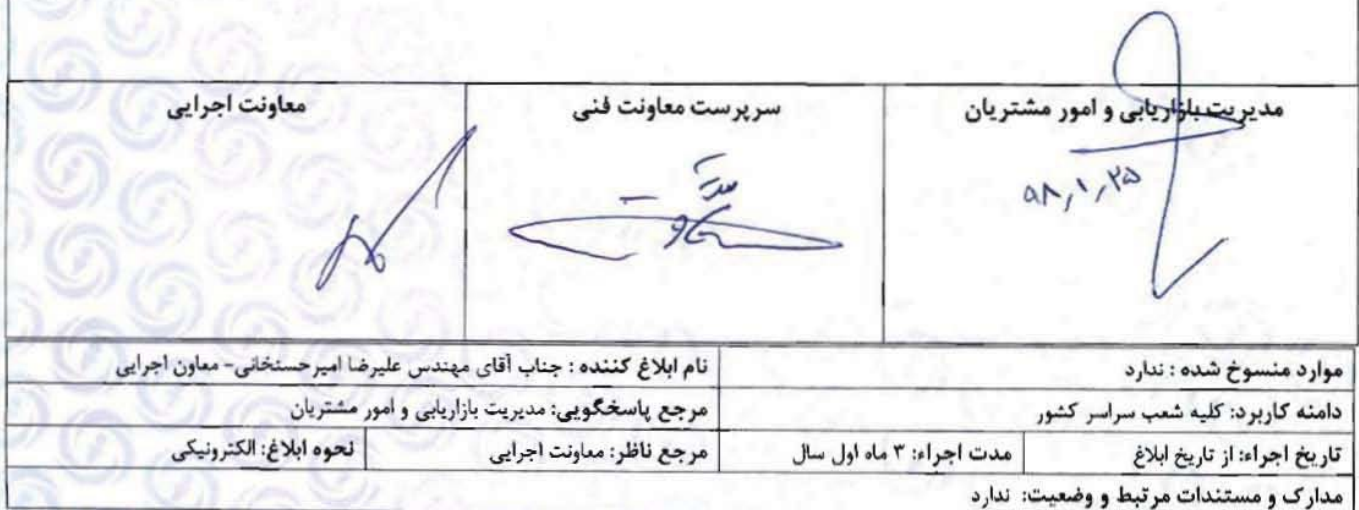 مدیریت بازاریابی و امور مشتریان
سرپرست معاونت فنی
معاونت اجرایی
۹۸,۱,۲۵
موارد منسوخ شده : ندارد
نام ابلاغ کننده : جناب آقای مهندس علیرضا امیرحسنخانی- معاون اجرایی
دامنه کاربرد: کلیه شعب سراسر کشور
مرجع پاسخگویی: مدیریت بازاریابی و امور مشتریان
تاریخ اجراء: از تاریخ ابلاغ
مدت اجراء: ۳ ماه اول سال
مرجع ناظر: معاونت اجرایی
نحوه ابلاغ: الکترونیکی
مدارک و مستندات مرتبط و وضعیت: ندارد